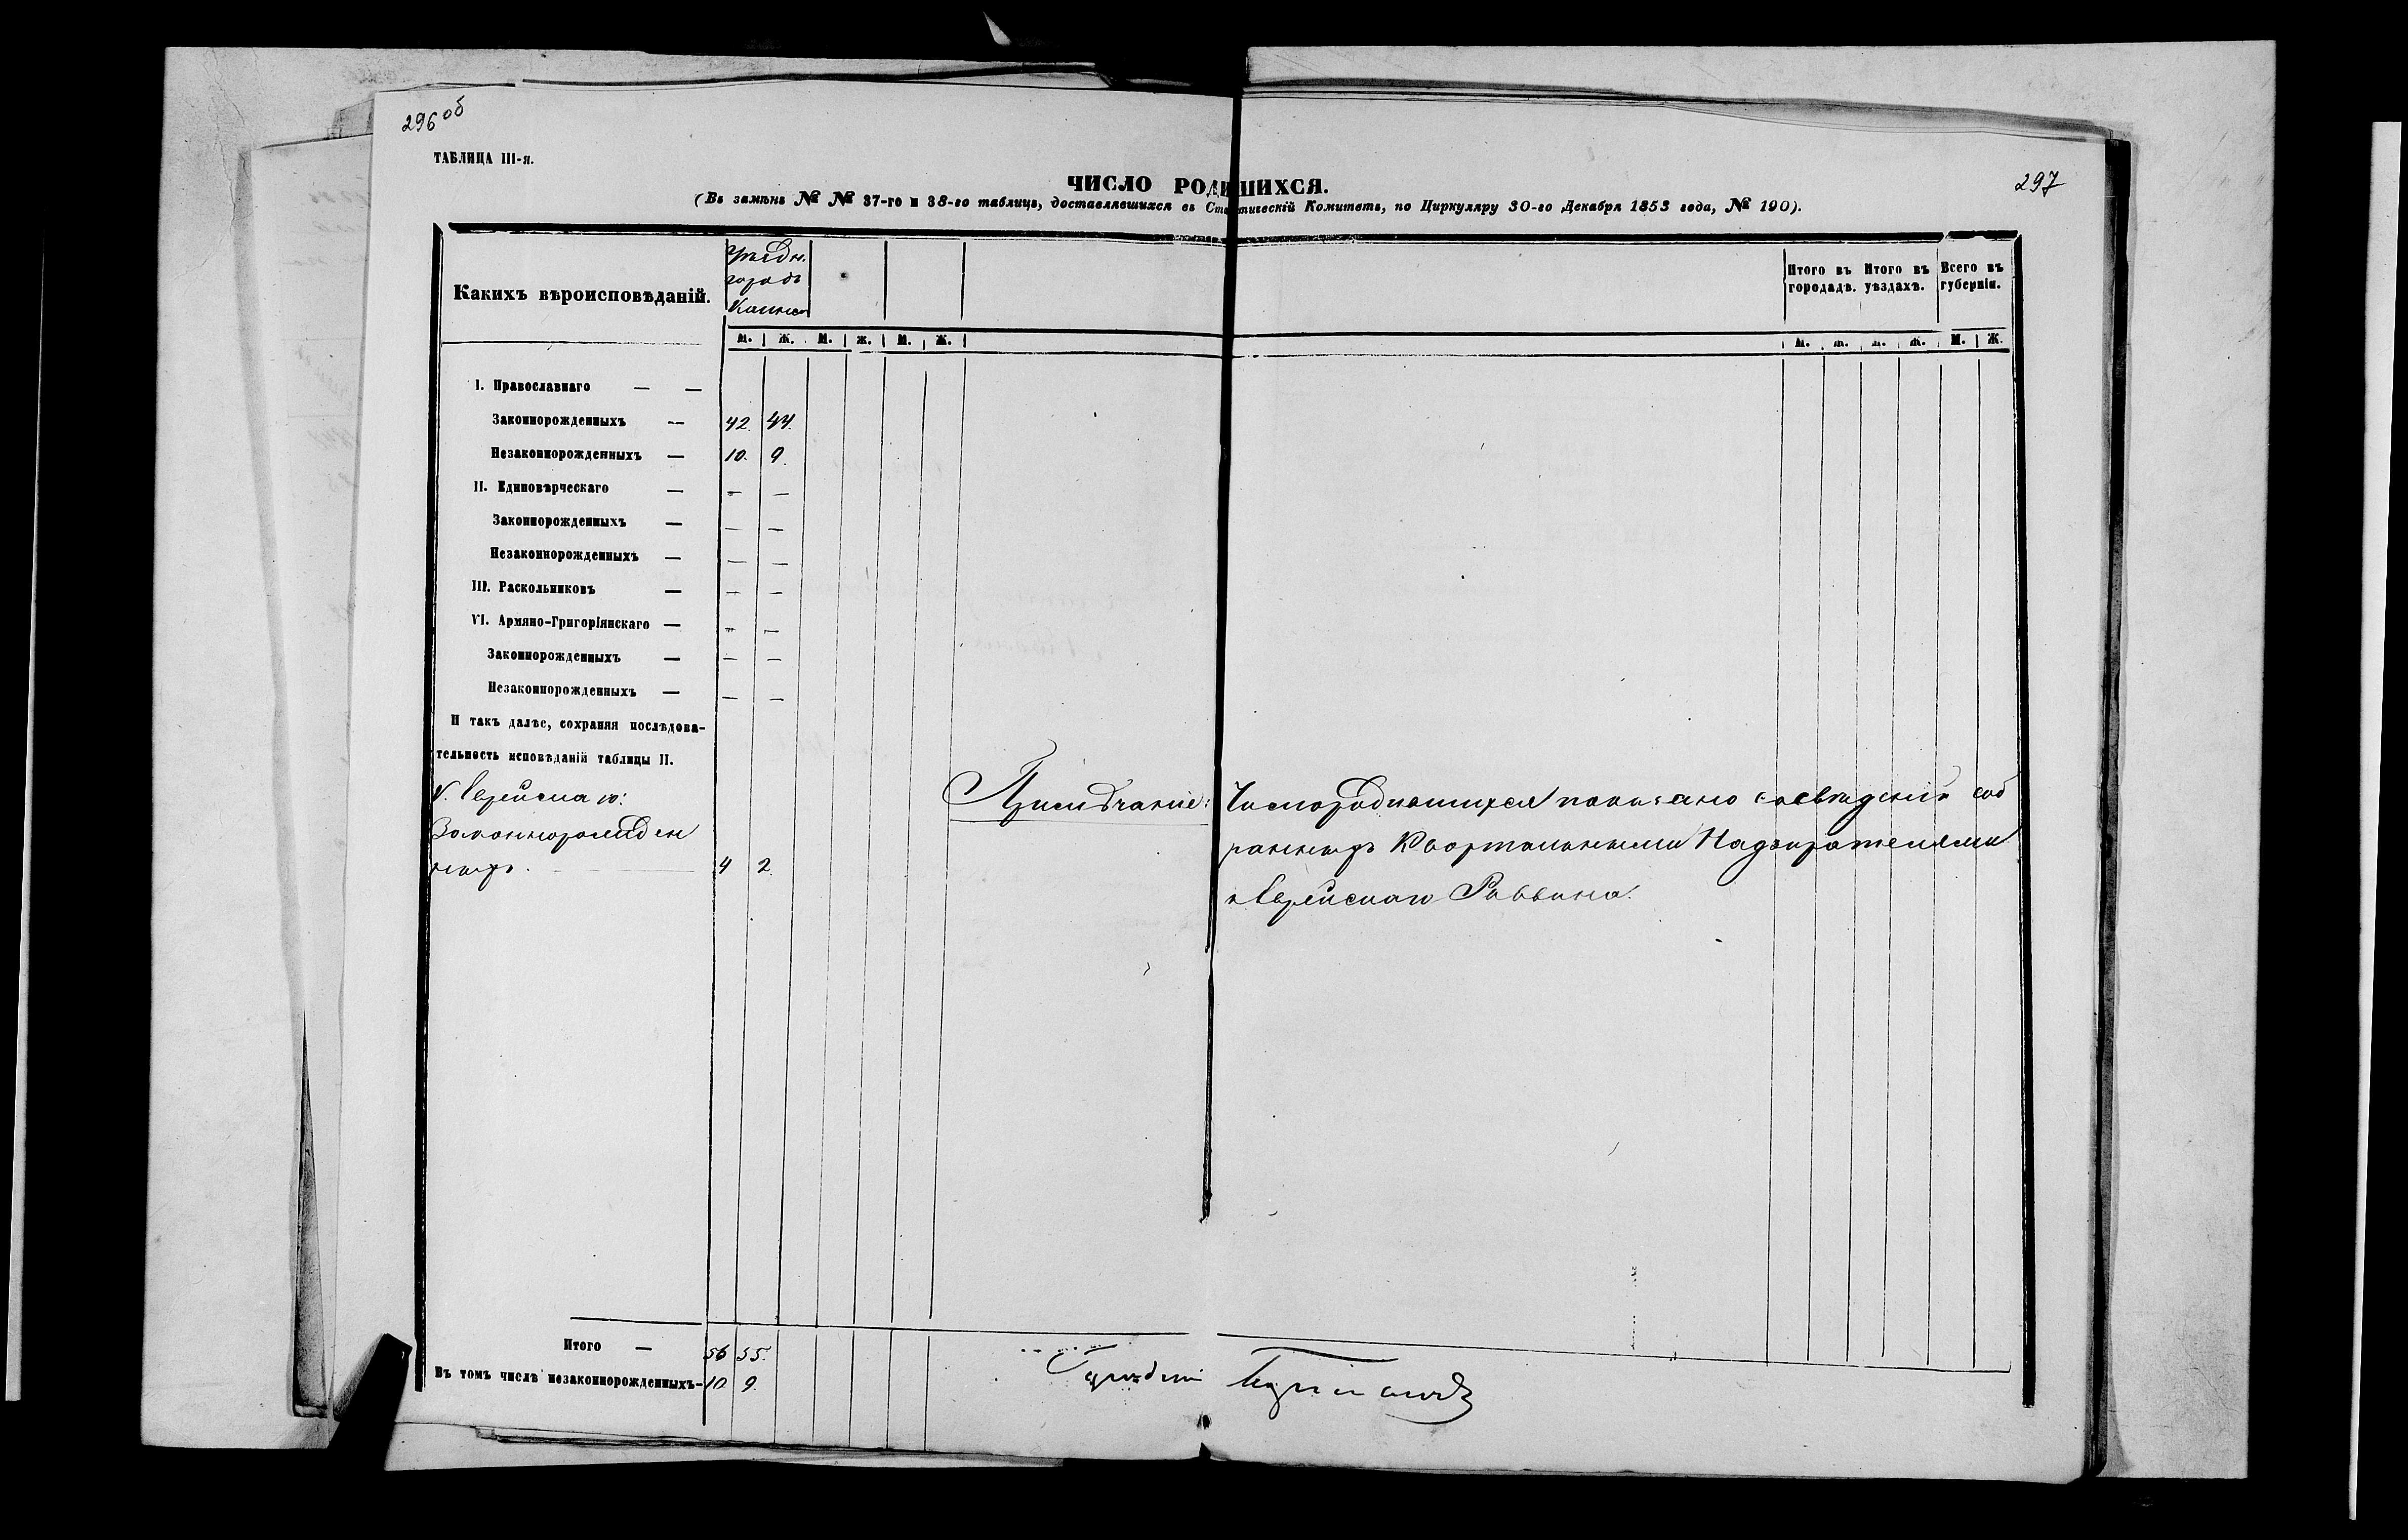 296 об
ТАБЛИЦА III-я.
297
ЧИСЛО РОДИВШИХСЯ.
(Въ замѣнъ № № 37-го и 38-го таблицъ, доставлявшихся въ Статистическій Комитетъ, по Циркуляру 30-го Декабря 1853 года, № 190).
Какихъ вѣроисповѣданій.
Уѣздн.
городъ
Каинскъ
Итого въ городахъ. Итого въ уѣздахъ. Всего въ губерніи.
М. Ж. М. Ж. М. Ж. М. Ж. М. Ж. М. Ж.
I. Православнаго — —
Законнорожденныхъ — 42. 44.
Незаконнорожденныхъ — 10. 9.
II. Единовѣрческаго — — —
Законнорожденныхъ — — —
Незаконнорожденныхъ — — —
III. Раскольниковъ — — —
VI. Армяно-Григоріянскаго — — —
Законнорожденныхъ — — —
Незаконнорожденныхъ — — —
И такъ далѣе, сохраняя послѣдова-
тельность исповѣданій таблицы II.
V. Еврейскаго:
Законнорожден
ныхъ. 4 2.
Примѣчаніе: Число родившихся показано изъ свѣденій соб
ранныхъ Квартальными Надзирателями
и Еврейскаго Раввина.
Итого — 56 55.
Въ томъ числѣ незаконнорожденныхъ- 10 9.
Городничій